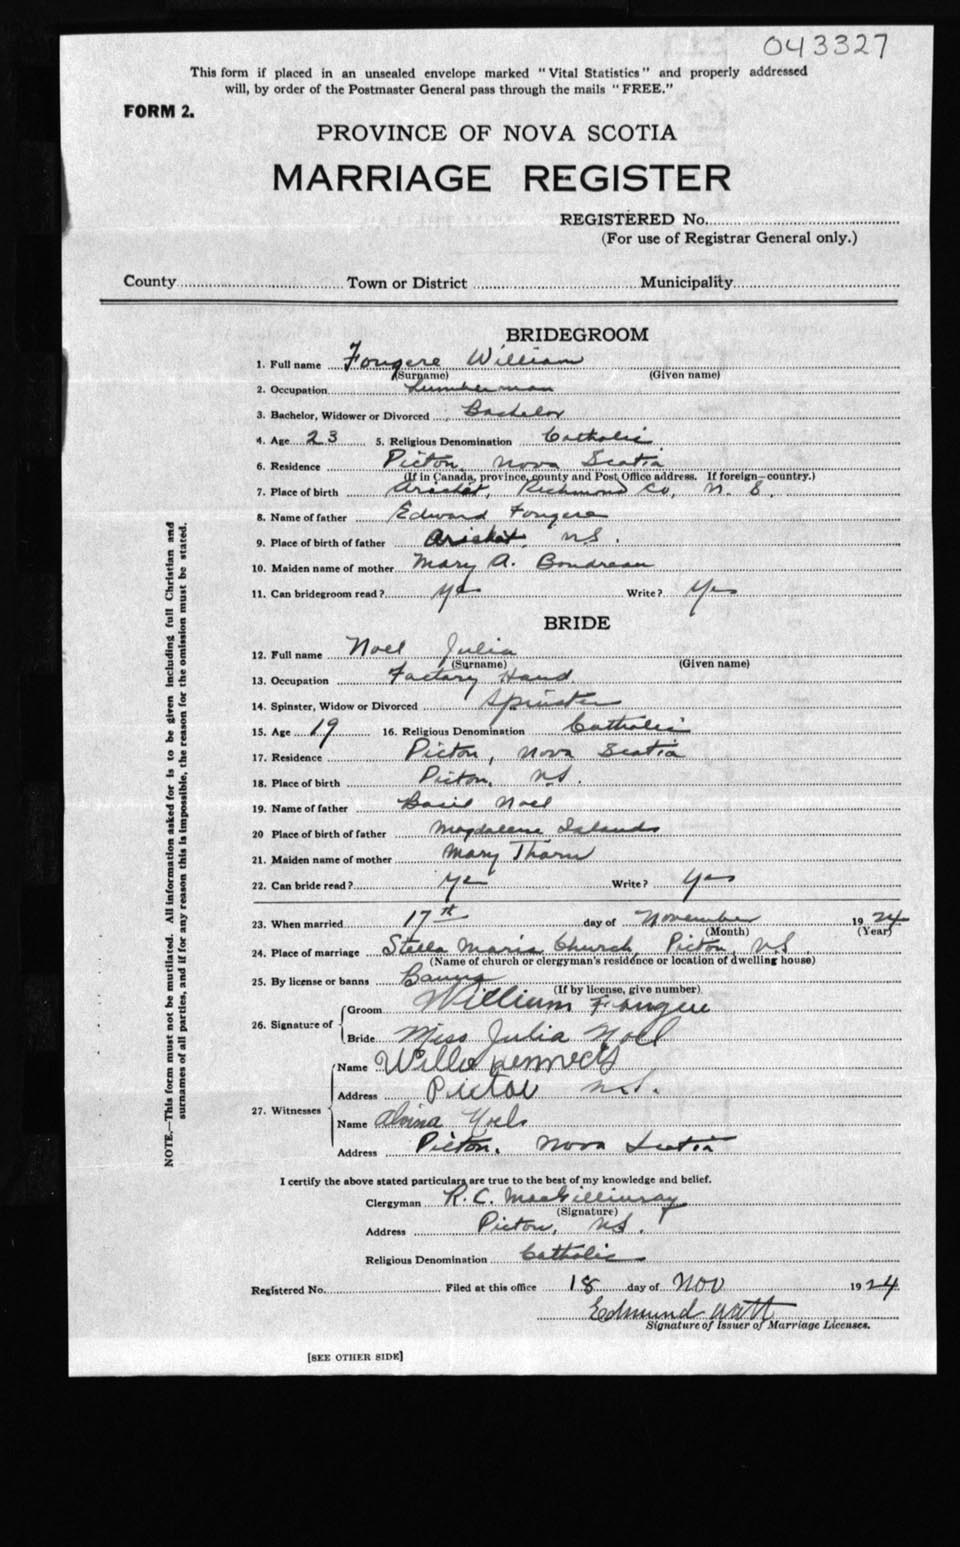 043327
This form if placed in an unsealed envelope marked "Vital Statistics" and properly addressed
will, by order of the Postmaster General pass through the mails "FREE."
FORM 2.
PROVINCE OF NOVA SCOTIA
MARRIAGE REGISTER
REGISTERED No.
(For use of Registrar General only.)
County Town or District Municipality
BRIDEGROOM
1. Full name Fougere William
(Surname) (Given name)
2. Occupation Lumberman
3. Bachelor, Widower or Divorced Bachelor
4. Age 23 5. Religious Denomination Catholic
6. Residence Picton, Nova Scotia
(If in Canada, province, county and Post Office address. If foreign—country.)
7. Place of birth Arichat, Richmond Co, N. S.
8. Name of father Edward Fougere
9. Place of birth of father Arichat, N.S.
10. Maiden name of mother Mary A. Boudreau
11. Can bridegroom read? Yes Write? Yes
BRIDE
12. Full name Noel Julia
(Surname) (Given name)
13. Occupation Factory Hand
14. Spinster, Widow or Divorced Spinster
15. Age 19 16. Religious Denomination Catholic
17. Residence Picton, Nova Scotia
18. Place of birth Picton, N.S.
19. Name of father Basil Noel
20 Place of birth of father Magdalene Islands
21. Maiden name of mother Mary Tharn
22. Can bride read? Yes Write? Yes
23. When married 17th day of November 1924
(Month) (Year)
24. Place of marriage Stella Maris Church, Picton, N.S.
(Name of church or clergyman's residence or location of dwelling house)
25. By license or banns Banns
(If by license, give number)
26. Signature of Groom William Fougere
Bride Miss Julia Noel
27. Witnesses Name Kennedy
Address Pictou N.S.
Name Alvina Noels
Address Picton, Nova Scotia
I certify the above stated particulars are true to the best of my knowledge and belief.
Clergyman R. C. MacGillivray
(Signature)
Address Picton, N.S.
Religious Denomination Catholic
Registered No. Filed at this office 18 day of Nov 1924
Edmund Watt
Signature of Issuer of Marriage Licenses.
[SEE OTHER SIDE]
NOTE.—This form must not be mutilated. All information asked for is to be given including full Christian and
surnames of all parties, and if for any reason this is impossible, the reason for the omission must be stated.